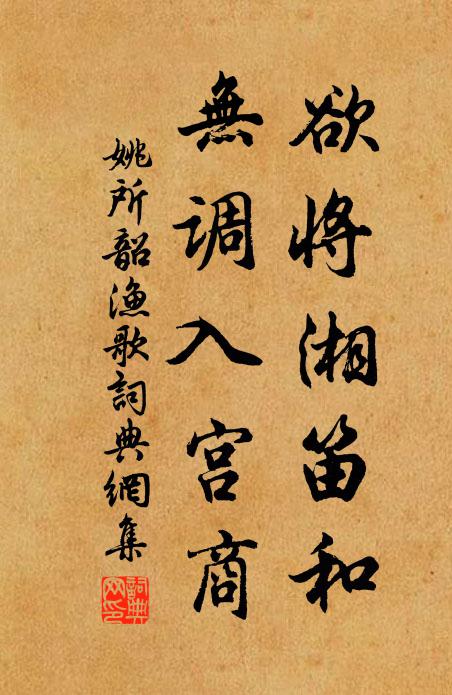 欲将湘笛和
無调入宫商
姚所韶渔歌詞典網集
詞典网印